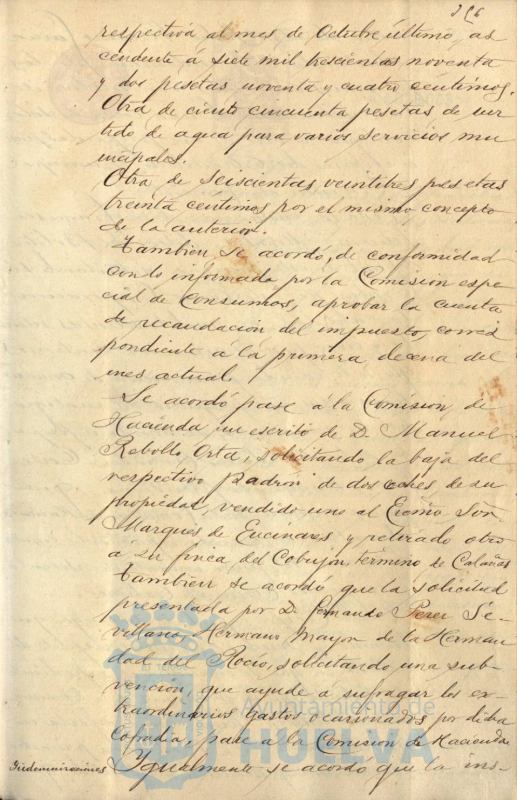 respectiva al mes de Octubre último, as
cendente á siete mil trescientas noventa
y dos pesetas noventa y cuatro céntimos.
Otra de ciento cincuenta pesetas de sur
tido de agua para varios servicios mu
nicipales.
Otra de seiscientas veintitres pesetas
treinta céntimos por el mismo concepto
de la anterior.
Tambien se acordó, de conformidad
con lo informado por la Comision espe
cial de consumos, aprobar la cuenta
de recaudación del impuesto, corres
pondiente á la primera decena del
mes actual.
Se acordó pase á la Comision de
Hacienda un escrito de D. Manuel
Rebollo Orta, solicitando la baja del
respectivo padrón de dos coches de su
propiedad, vendido uno al Excmo Sor.
Marqués de Encinares y retirado otro
á su finca del Cobujon, término de Calañas
Tambien se acordó que la solicitud
presentada por D. Fernando Perez Se-
villano, Hermano Mayor de la Herman
dad del Rocío, solicitando una sub-
vención, que ayude a sufragar los ex-
traordinarios gastos ocasionados por dicha
Cofradía, pase a la Comision de Hacienda
Indemnizaciones Igualmente se acordó que la ins-
Ayuntamiento de
HUELVA